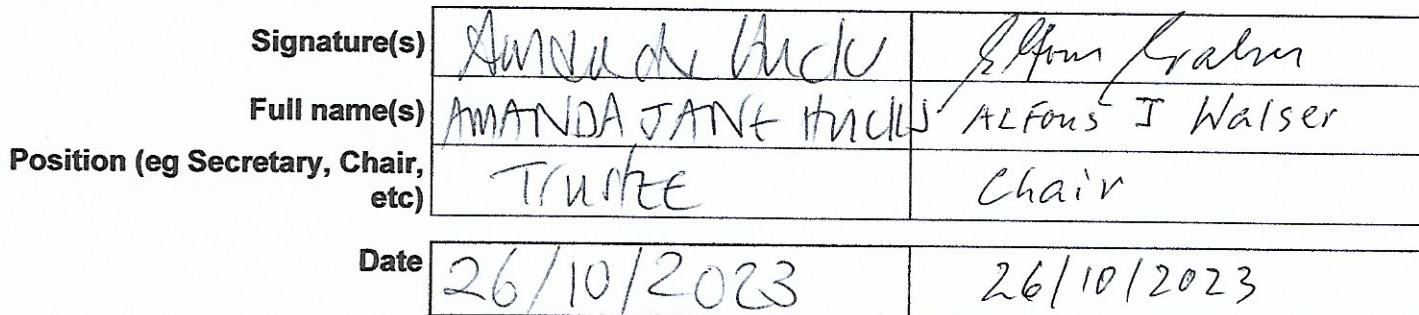 Signature(s)
Full name(s) AMANDA JANE Hucks ALFons J Walser
Position (eg Secretary, Chair,
etc) Trustee Chair
Date 26/10/2023 26/10/2023